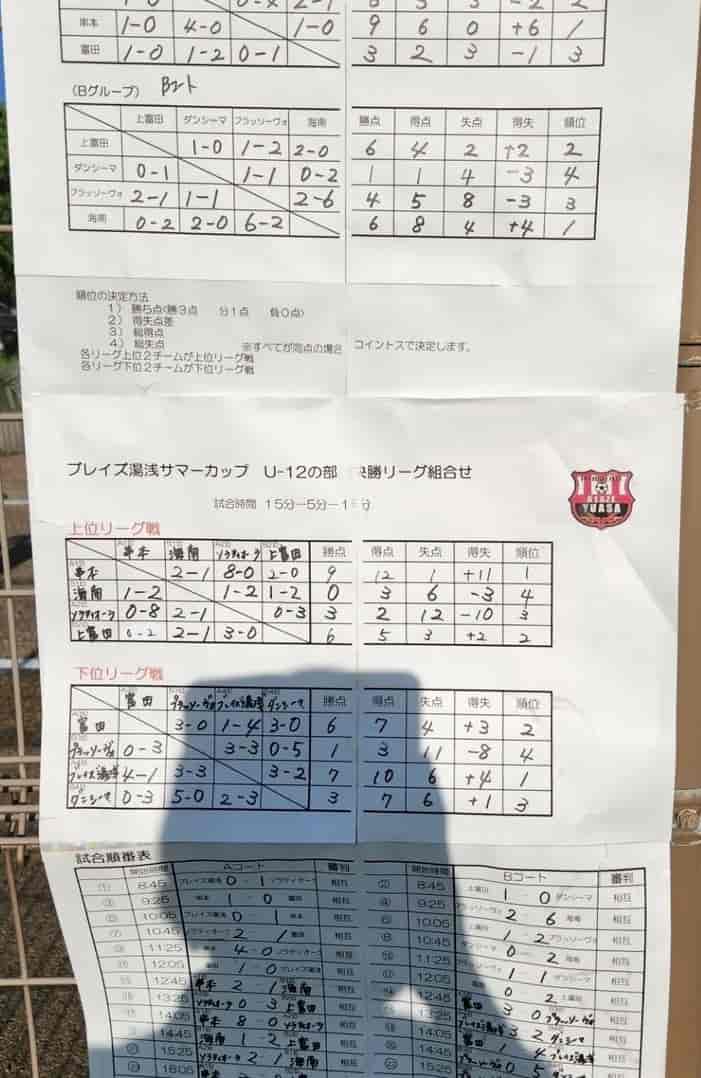 串本 1-0 4-0 1-0 9 6 0 +6 1
富田 1-0 1-2 0-1 3 2 3 -1 3
(Bグループ) Bコート
上富田 ダンシーマ フラッソーヴォ 海南 勝点 得点 失点 得失 順位
上富田 1-0 1-2 2-0 6 4 2 +2 2
ダンシーマ 0-1 1-1 0-2 1 1 4 -3 4
フラッソーヴォ 2-1 1-1 2-6 4 5 8 -3 3
海南 0-2 2-0 6-2 6 8 4 +4 1
順位の決定方法
1) 勝ち点(勝3点 分1点 負0点)
2) 得失点差
3) 総得点
4) 総失点 ※すべてが同点の場合 コイントスで決定します。
各リーグ上位2チームが上位リーグ戦
各リーグ下位2チームが下位リーグ戦
ブレイズ湯浅サマーカップ U-12の部 決勝リーグ組合せ
YUASA
試合時間 15分-5分-15分
上位リーグ戦
串本 海南 ソラティオーラ 上富田 勝点 得点 失点 得失 順位
串本 2-1 8-0 2-0 9 12 1 +11 1
海南 1-2 1-2 1-2 0 3 6 -3 4
ソラティオーラ 0-8 2-1 0-3 3 2 12 -10 3
上富田 0-2 2-1 3-0 6 5 3 +2 2
下位リーグ戦
富田 フラッソーヴォ ブレイズ湯浅 ダンシーマ 勝点 得点 失点 得失 順位
富田 3-0 1-4 3-0 6 7 4 +3 2
フラッソーヴォ 0-3 3-3 0-5 1 3 11 -8 4
ブレイズ湯浅 4-1 3-3 3-2 7 10 6 +4 1
ダンシーマ 0-3 5-0 2-3 3 7 6 +1 3
試合順番表
開始時間 Aコート 審判 開始時間 Bコート 審判
① 8:45 ブレイズ湯浅 0-1 ソラティオーラ 相互 ② 8:45 上富田 1-0 ダンシーマ 相互
③ 9:25 串本 1-0 富田 相互 ④ 9:25 フラッソーヴォ 2-6 海南 相互
⑤ 10:05 ブレイズ湯浅 0-1 串本 相互 ⑥ 10:05 上富田 1-2 フラッソーヴォ 相互
⑦ 10:45 ソラティオーラ 2-1 富田 相互 ⑧ 10:45 ダンシーマ 0-2 海南 相互
⑨ 11:25 串本 4-0 ソラティオーラ 相互 ⑩ 11:25 フラッソーヴォ 1-1 ダンシーマ 相互
12:05 富田 1-0 ブレイズ湯浅 相互 12:05 0-2 上富田 相互
12:45 串本 2-1 海南 相互 12:45 富田 3 0 フラッソーヴォ 相互
13:25 ソラティオーラ 0-3 上富田 相互 13:25 ブレイズ湯浅 3 2 ダンシーマ 相互
14:05 串本 8-0 ソラティオーラ 相互 14:05 富田 1 4 ブレイズ湯浅 相互
14:45 海南 1-2 上富田 相互 14:45 フラッソーヴォ 0 5 相互
15:25 ソラティオーラ 2-1 海南 相互 15:25
16:05 串本